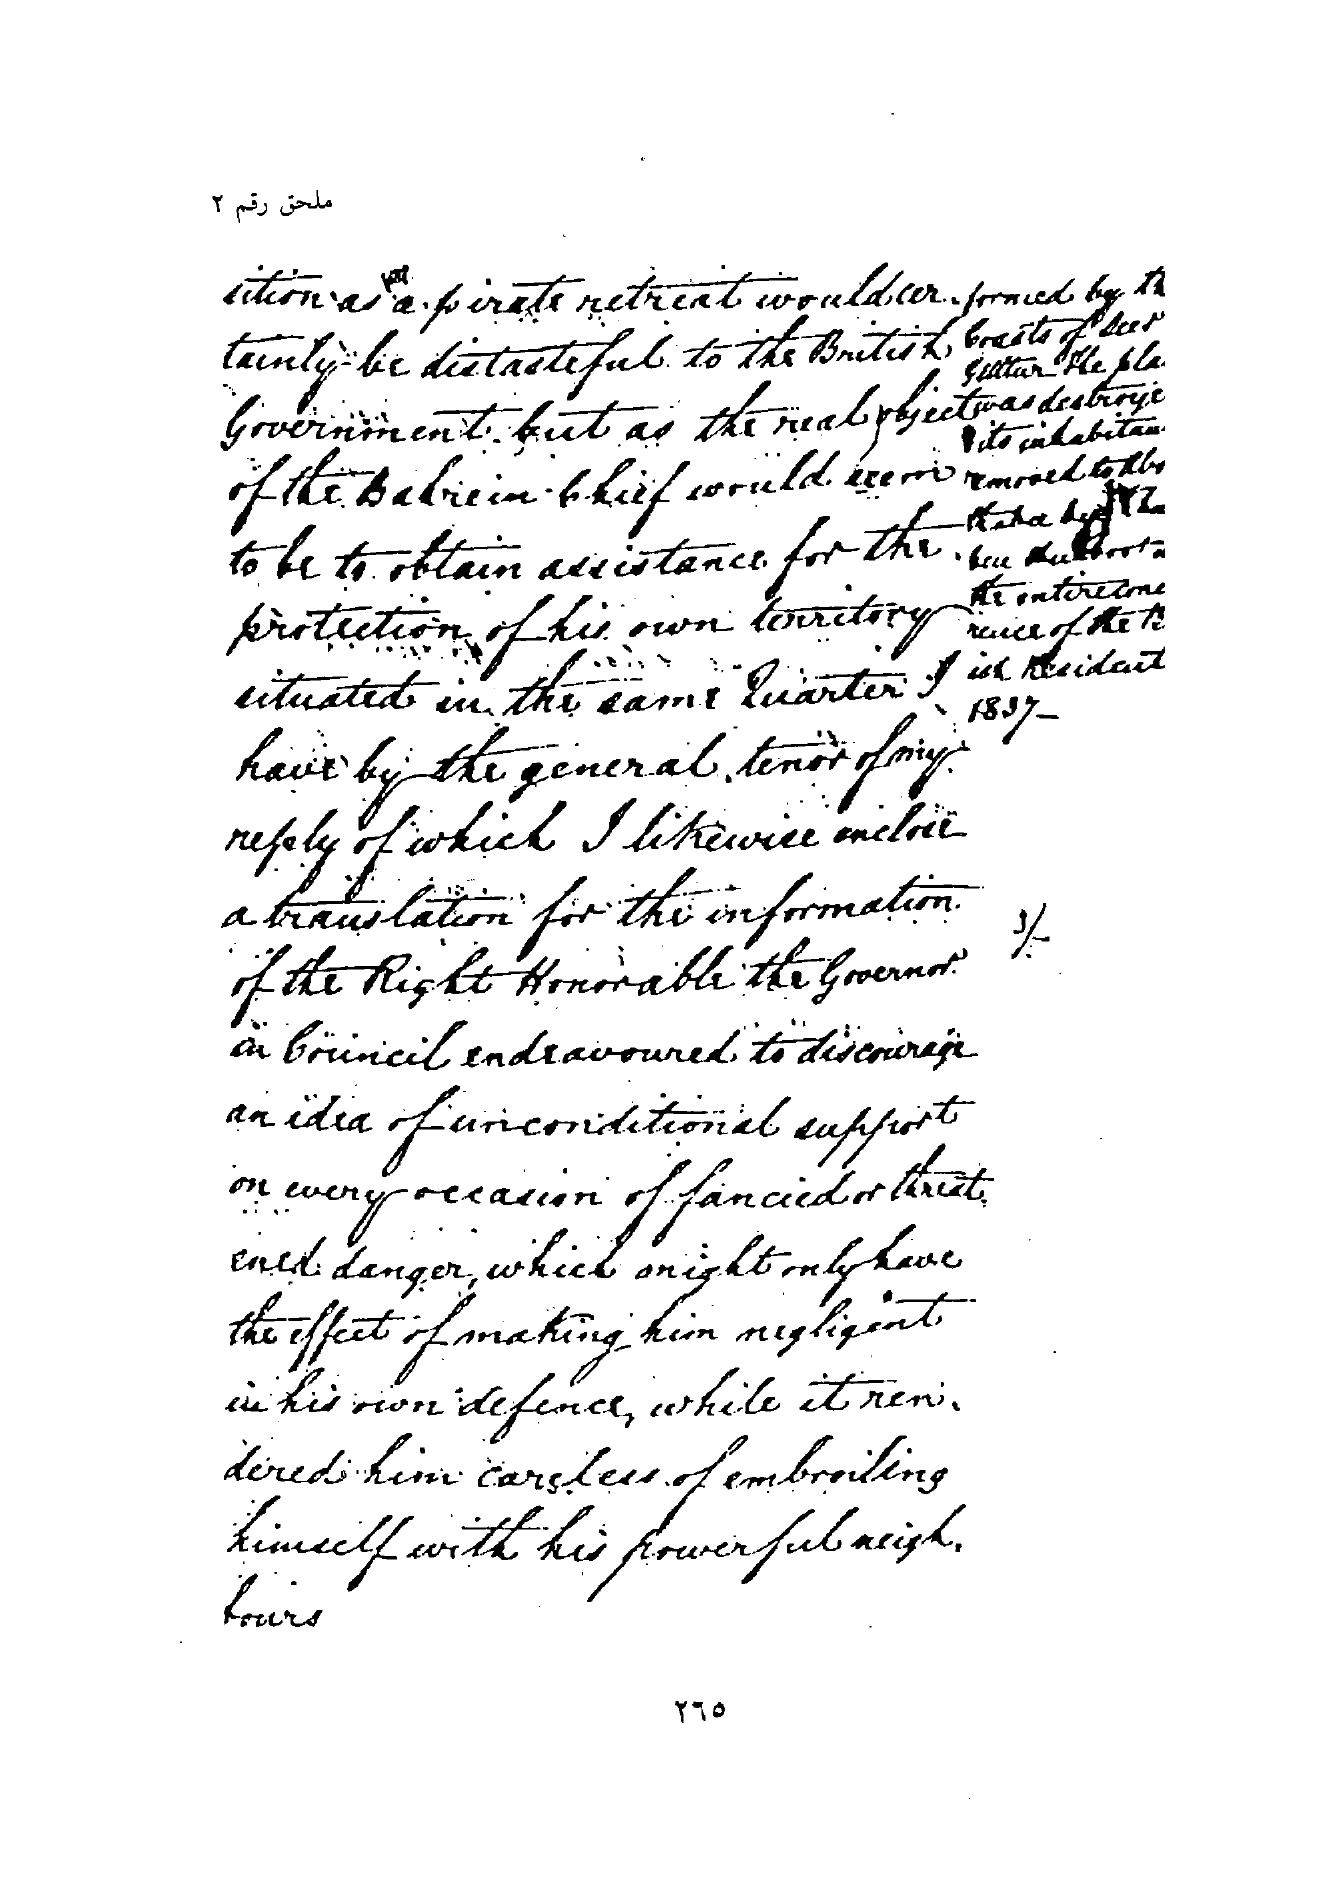 ملحق رقم ٢
sition as a pirate retreat would cer.
tainly be distasteful to the British
Government but as the real object
of the Bahrein Chief would seem
to be to obtain assistance for the
protection of his own territory
situated in the same Quarter I
have by the general tenor of my
reply of which I likewise enclose
a translation for the information
of the Right Honorable the Governor
in Council endeavoured to discourage
an idea of unconditional support
on every occasion of fancied or threat.
ened danger, which might only have
the effect of making him negligent
in his own defence, while it ren.
dered him careless of embroiling
himself with his powerful neigh.
bours
formed by th
boasts of
the pla
was destroye
its inhabitan
removed to Abo
the entire conc
rence of the
ish Resident
1837
3/-
٢٦٥